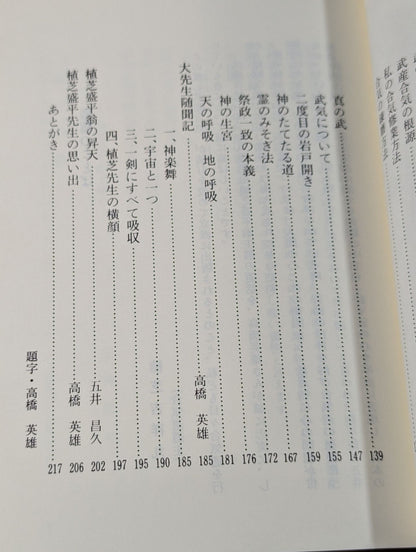 武産合気の根源
私の合気修業方法
真の武 139
武気について 147
二度目の岩戸開き 155
神のたてたる道 159
霊のみそぎ法 167
祭政一致の本義 172
神の生宮 176
天の呼吸 地の呼吸 181
大先生随聞記 高橋 英雄 185
一、神楽舞 185
二、宇宙と一つ 190
三、一剣にすべて吸収 195
四、植芝先生の横顔 197
植芝盛平翁の昇天 五井 昌久 202
植芝盛平先生の思い出 高橋 英雄 206
あとがき 217
題字・高橋 英雄